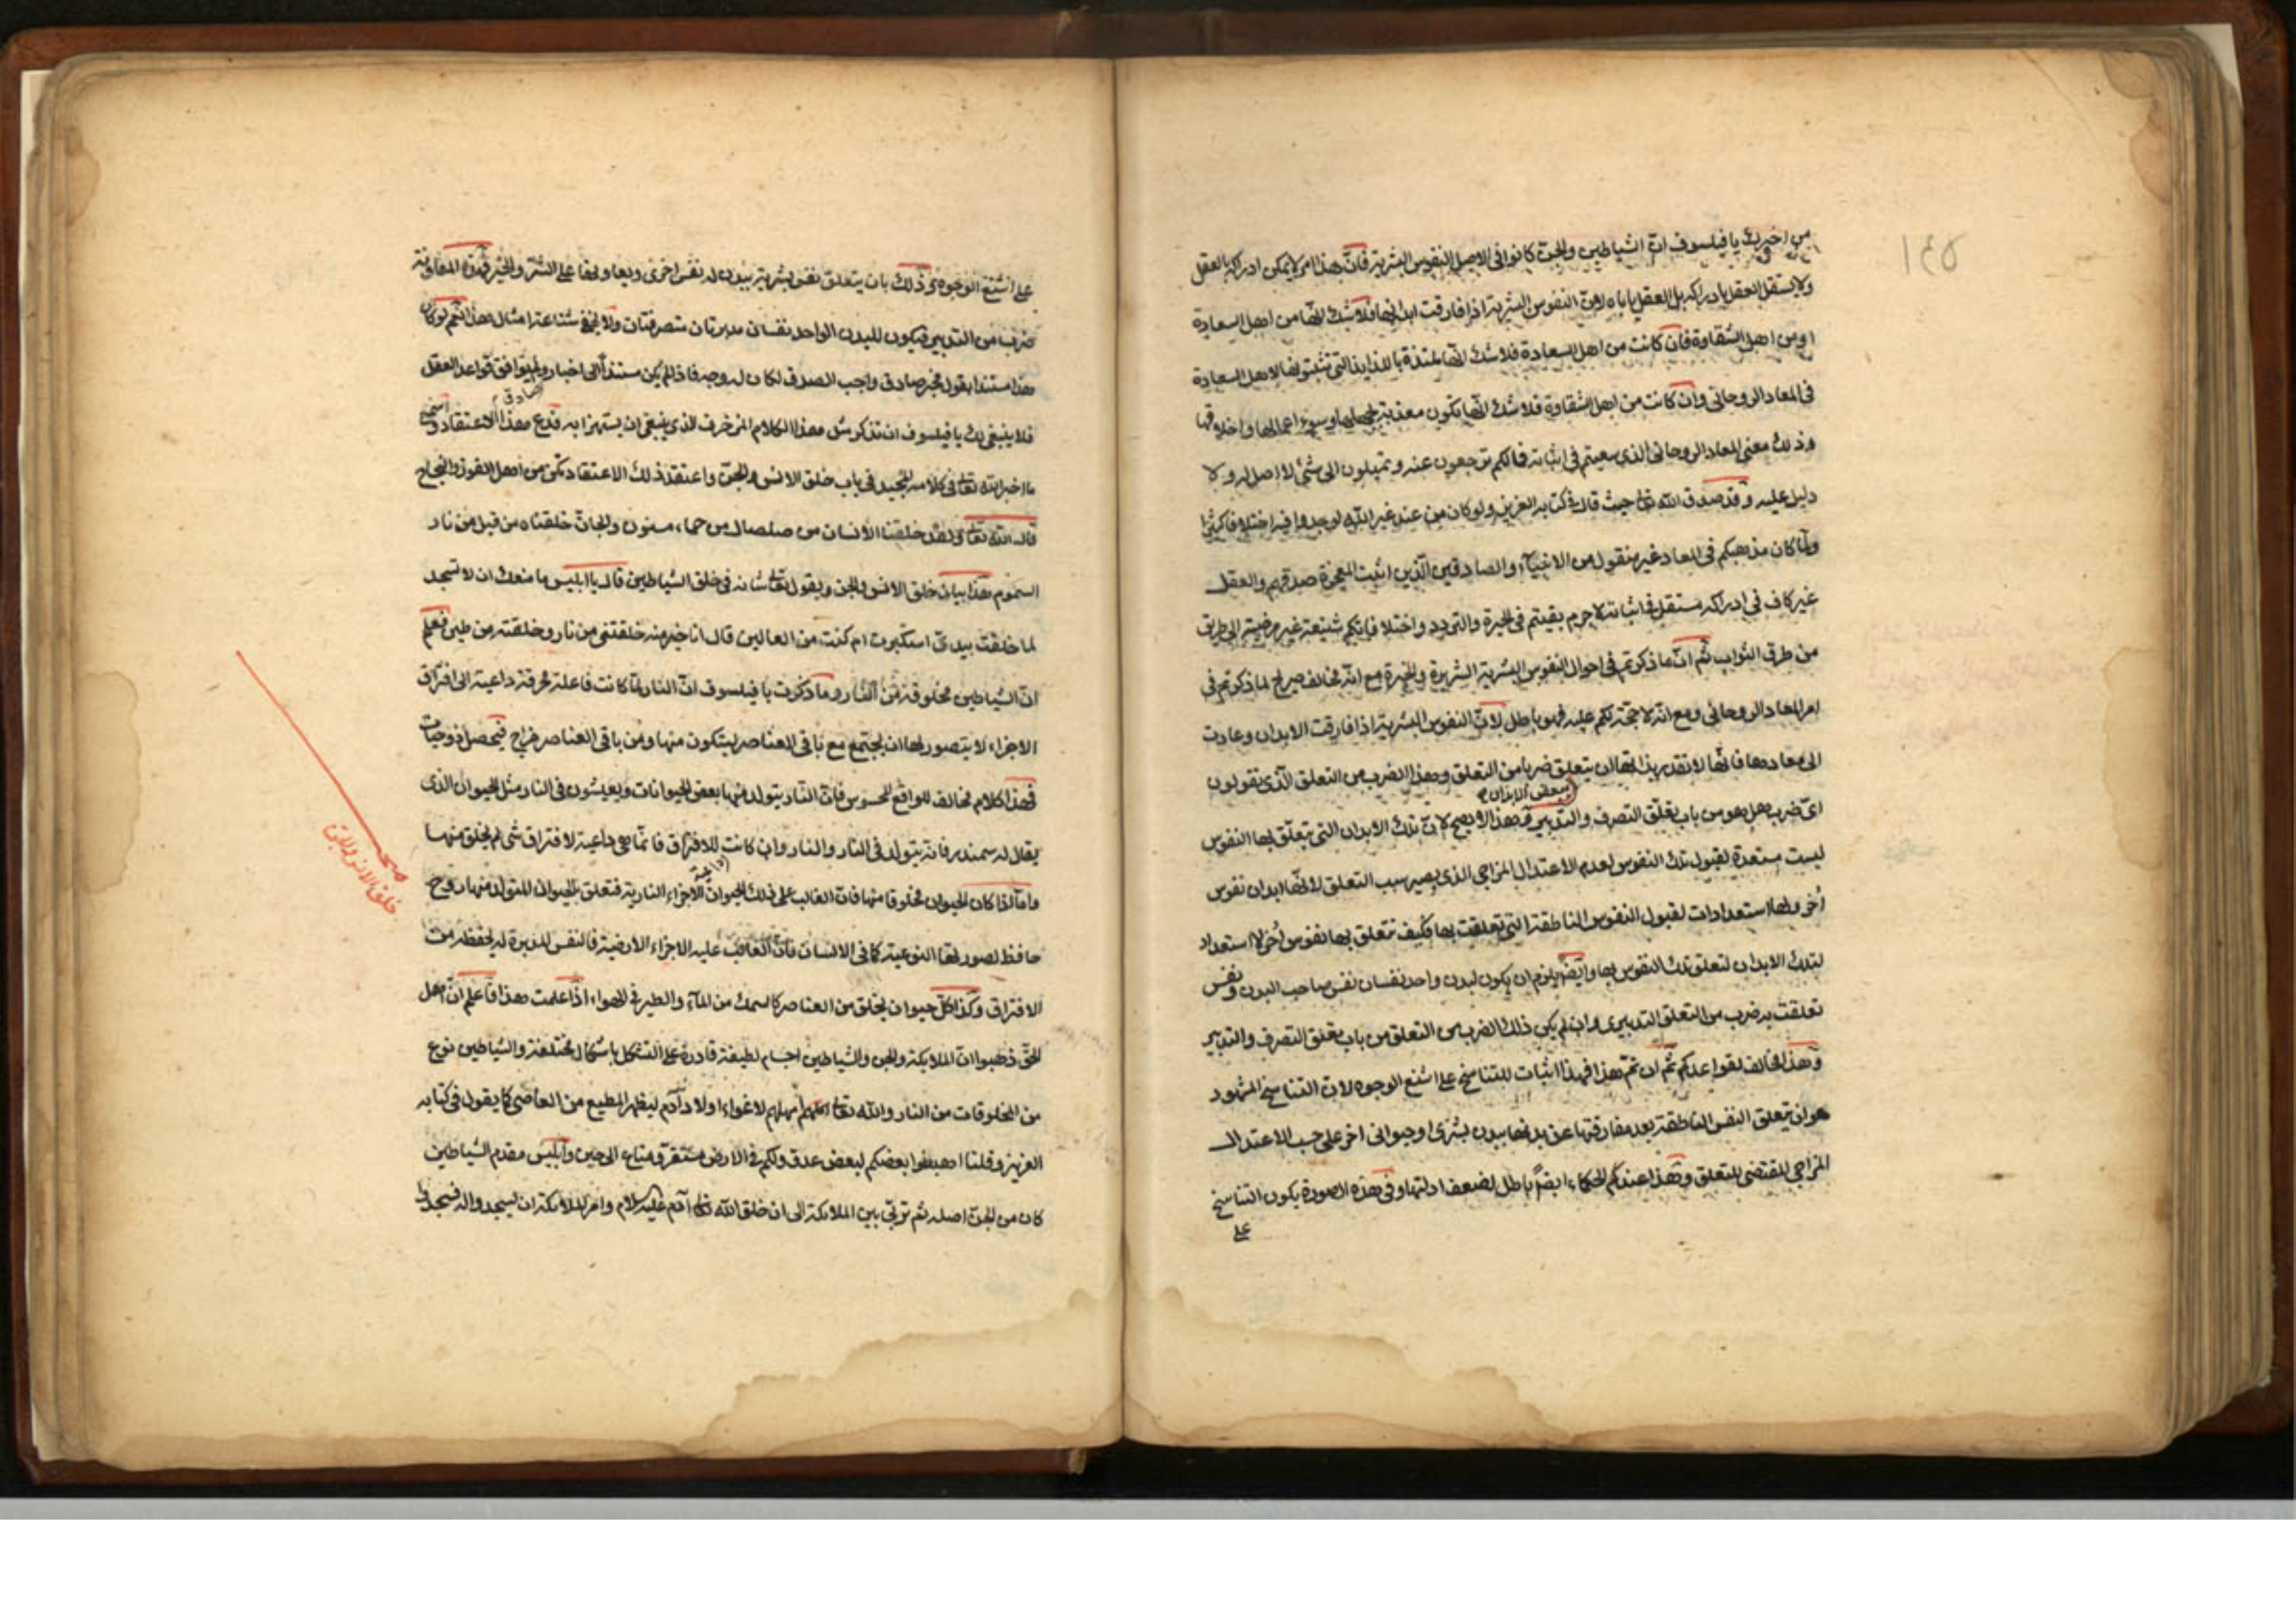 ١٤٥
من اخبرك يا فيلسوف انّ الشياطين والجن كانوا فى الاصل النفوس البشرية فانّ هذا امر لا يمكن ادراكه بالعقل
ولا يستقل العقل بادراكه بل العقل ياباه لانّ النفوس البشرية اذا فارقت ابدانها فلا شك انّها من اهل السعادة
او من اهل الشقاوة فان كانت من اهل السعادة فلا شك انّها ملتذة باللذايذ التى تثبتونها لاهل السعادة
فى المعاد الروحانى وان كانت من اهل الشقاوة فلا شك انّها تكون معذبة بجهلها وسوء اعمالها واخلاقها
وذلك معنى المعاد الروحانى الذى سعيتم فى اثباته فما لكم ترجعون عنه وتميلون الى شئ لا اصل له ولا
دليل عليه وقد صدق الله تعا حيث قال فى كتابه العزيز ولو كان من عند غير الله لوجدوا فيه اختلافا كثيرا
ولمّا كان مذهبكم فى المعاد غير منقول من الانبيآء والصادقين الّذين اثبت المعجزة صدقهم والعقل
غير كاف فى ادراكه مستقل فى اثباته لا جرم بقيتم فى الحيرة والتردد واختلافاتكم شنيعة غير مرضية الى طريق
من طرق الثواب ثم انّ ما ذكرتم فى احوال النفوس البشرية الشريرة والخيرة مع انّه مخالف صريح لما ذكرتم فى
امر المعاد الروحانى ومع انّه لا حجّة لكم عليه فهو باطل لانّ النفوس البشرية اذا فارقت الابدان وعادت
الى معادها فانّها لا تقدر بذاتها ان يتعلق ضربا من التعلق وهذا الضرب من التعلق الّذى تقولون
اىّ ضرب هل هو من باب تعلّق التصرف والتدبير فهذا لا يصح لانّ تلك الابدان التى يتعلّق بها النفوس
ليست مستعدة لقبول تلك النفوس لعدم الاعتدال المزاجى الذى يصير سبب التعلق لانّها ابدان نفوس
أخر ولها استعدادات لقبول النفوس الناطقة التى تعلقت بها فكيف تتعلق بها نفوس أخر لا استعداد
لتلك الابدان لتعلق تلك النفوس بها وايضا يلزم ان يكون لبدن واحد نفسان نفس صاحب البدن ونفس
تعلقت به ضرب من التعلق التدبيرى وان لم يكن ذلك الضرب من التعلق من باب تعلق التصرف والتدبير
وهذا مخالف لقواعدكم ثم ان تم هذا فهذا اثبات للتناسخ على اشنع الوجوه لان التناسخ المشهود
هو ان يتعلق النفس الناطقة بعد مفارقتها عن بدنها ببدن بشرى او حيوانى اخر على حسب الاعتدال
المزاجى المقتضى للتعلق وهذا عندكم الحكماء ايضاً باطل لضعف ادلتها وفى هذه الصورة يكون التناسخ
على
على اشنع الوجوه وذلك بان يتعلق نفس بشرية ببدن له نفس اخرى ويعاونها على الشر والخير وهذه المعاونة
ضرب من التدبير فيكون للبدن الواحد نفسان مدبرتان متصرفتان ولا يخفى شناعة امثال هذا نعم لو كان
هذا مستندا بقول مخبر صادق واجب الصدق لكان له وجه فاذا لم يكن مستنداً الى اخبار ولم يوافق قواعد العقل
صادق
فلا ينبغى لك يا فيلسوف ان تذكر مثل هذا الكلام المزخرف الذى ينبغى ان يستهزا به فدع هذا الاعتقاد واسمع
ما اخبر الله تعا فى كلامه المجيد فى باب خلق الانس والجن واعتقد ذلك الاعتقاد تكن من اهل الفوز والنجاح
قال الله تعا ولقد خلقنا الانسان من صلصال من حماء مسنون والجان خلقناه من قبل من نار
السموم هذا بيان خلق الانس والجن ويقول تعا شانه فى خلق الشياطين قال يا ابليس ما منعك ان لا تسجد
لما خلقت بيدىّ استكبرت ام كنت من العالين قال انا خير منه خلقتنى من نار وخلقته من طين فعلم
انّ الشياطين مخلوقة من النار وما ذكرت يا فيلسوف انّ النار لمّا كانت فاعلة محرقة داعية الى افتراق
الاجزاء لا يتصور لها ان يجتمع مع باقى العناصر ليتكون منها ومن باقى العناصر مزاج فيحصل ذو حيات
فهذا كلام مخالف للواقع المحسوس فانّ النار يتولد فيها بعض الحيوانات ويعيشون فى النار مثل الحيوان الذى
يقال له سمندر فانه يتولد فى النار والنار وان كانت للافتراق فانمّا هى داعية لافتراق شئ لم يخلق منها
وامّا اذا كان الحيوان مخلوقا منها فانّ الغالب على ذلك الحيوان الاجزاء النارية فتعلق بالحيوان المتولد منها روح
حافظ لصورتها النوعية كما فى الانسان فانّ الغالب عليه الاجزاء الارضية فالنفس المدبرة له يحفظه من
الافتراق وكذا كلّ حيوان يخلق من العناصر كالسمك من المآء والطير فى الهواء اذا علمت هذا فاعلم انّ اهل
الحق ذهبوا انّ الملايكة والجن والشياطين اجسام لطيفة قادرة على التشكل باشكال مختلفة والشياطين نوع
من المخلوقات من النار والله تعا امهلهم لاغواء اولاد آدم ليظهر المطيع من العاصى كما يقول فى كتابه
العزيز وقلنا اهبطوا بعضكم لبعض عدو ولكم فى الارض مستقر ومتاع الى حين وابليس مقدم الشياطين
كان من الجن اصله ثم تربّى بين الملائكة الى ان خلق الله تعا آدم عليه السلام وامر الملائكة ان يسجدوا له فسجدوا
خلق الانس والجن